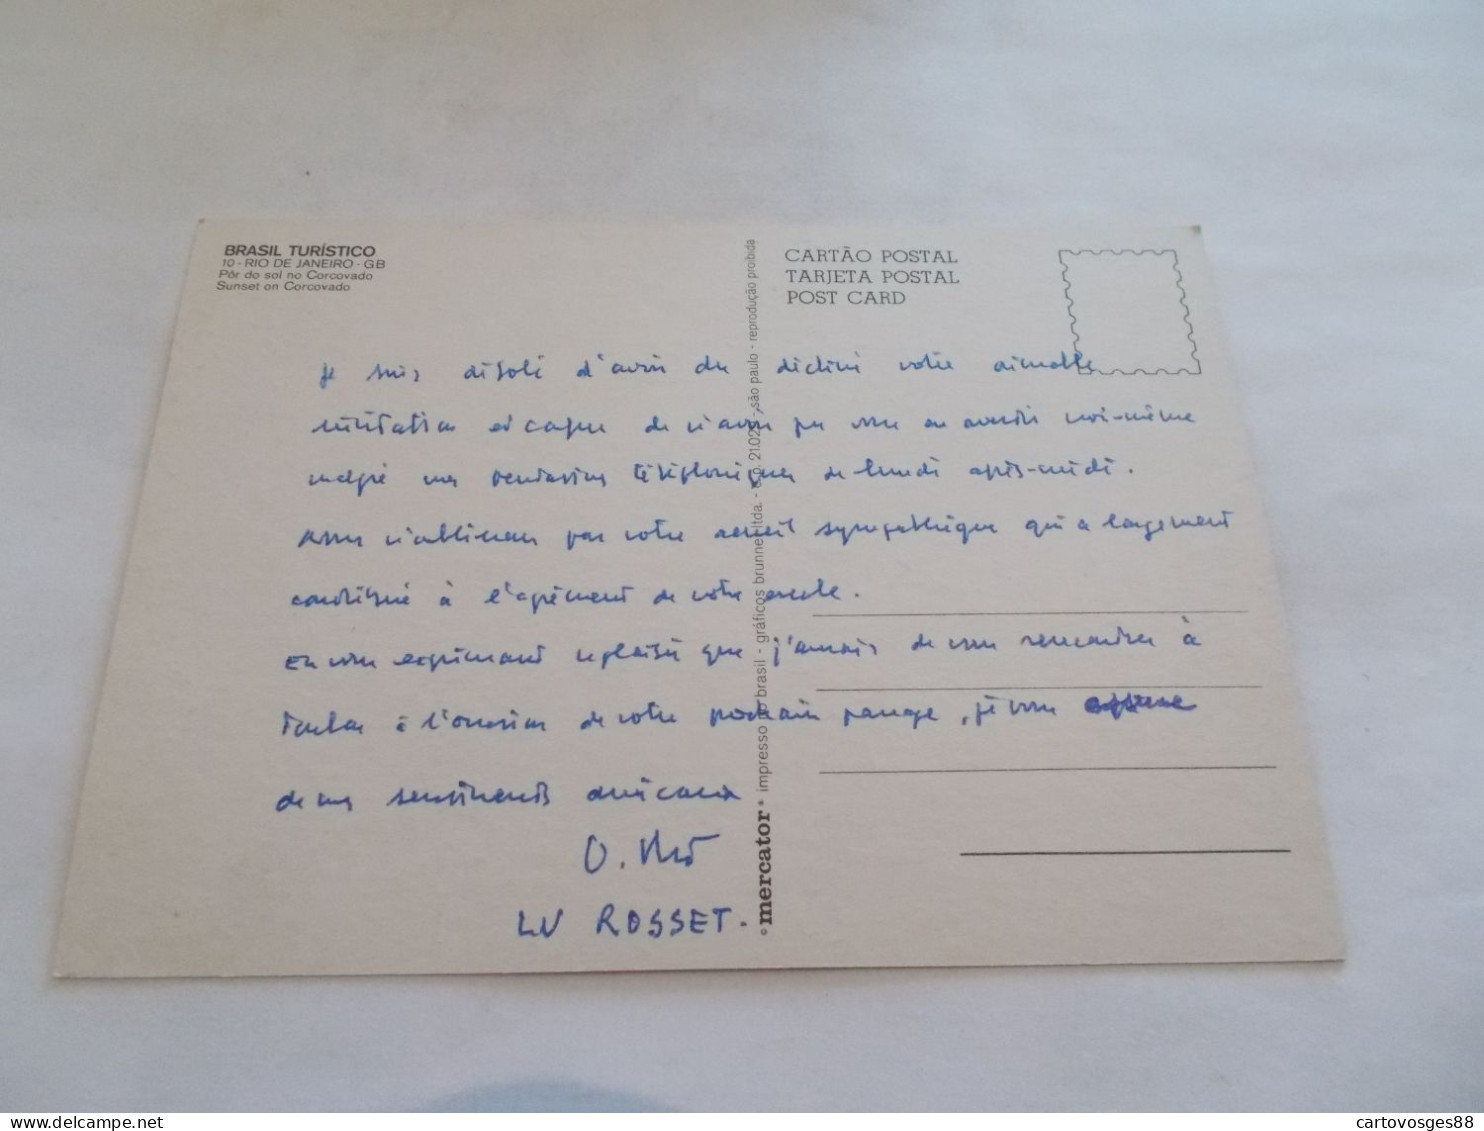 BRASIL TURÍSTICO
10 - RIO DE JANEIRO - GB
Pôr do sol no Corcovado
Sunset on Corcovado
CARTÃO POSTAL
TARJETA POSTAL
POST CARD
mercator impresso no brasil - gráficos brunner ltda. - são paulo - reprodução proibida
je suis désolé d'avoir du décliné votre aimable
invitation et de n'avoir pu vous en avertir moi-même
malgré mes téléphoniques de lundi après-midi.
n'oublierons pas votre accueil sympathique qui a largement
contribué à l'agrément de notre escale.
En vous exprimant le plaisir que j'aurais de vous rencontrer à
Toulon à l'occasion de votre prochain passage, je vous
de mes sentiments amicaux
LV ROSSET.
cartovosges88